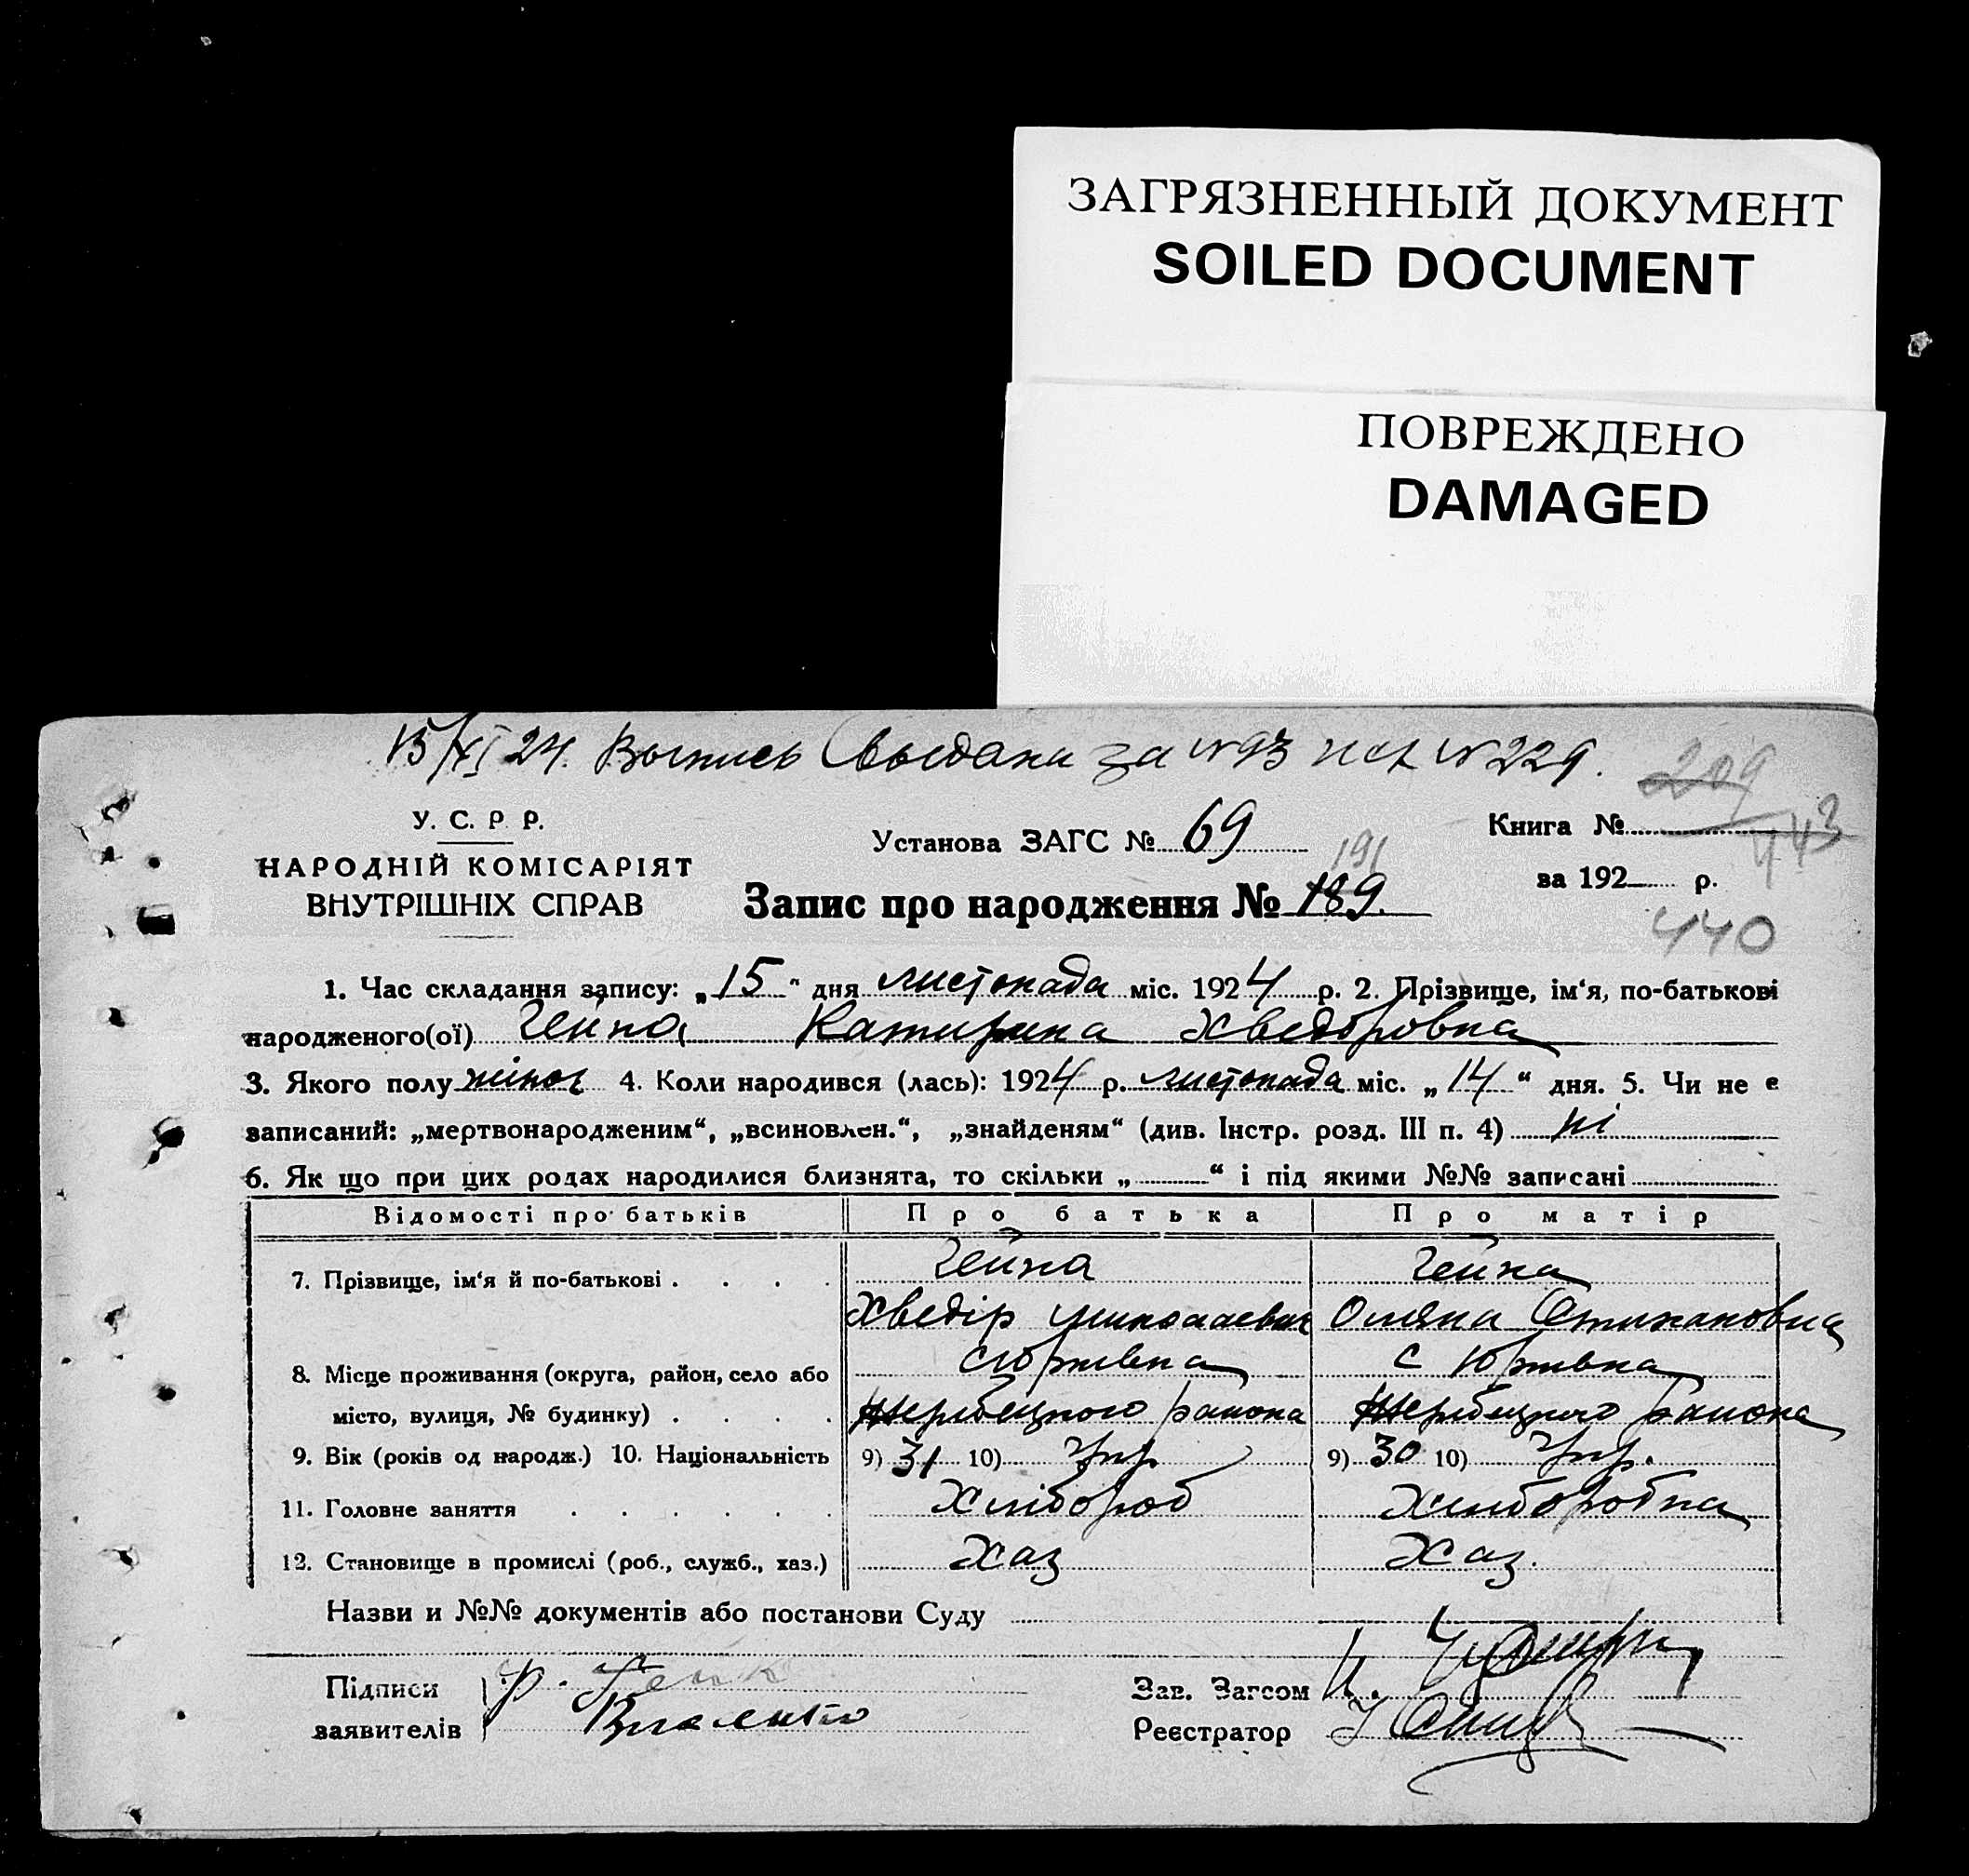 ЗАГРЯЗНЕННЫЙ ДОКУМЕНТ
SOILED DOCUMENT
ПОВРЕЖДЕНО
DAMAGED
24. Выпись выдана за №93 № 229.
209
У. С. Р. Р.
НАРОДНІЙ КОМІСАРІЯТ
ВНУТРІШНІХ СПРАВ
Установа ЗАГС № 69
191
Запис про народження № 189.
Книга №
443
за 192 р.
440
1. Час складання запису: „15“ дня листопада міс. 1924 р. 2. Прізвище, ім‘я, по-батькові
народженого(ої) Гейка Катирина Хведоровна
3. Якого полу жіноч 4. Коли народився (лась): 1924 р. листопада міс. „14“ дня. 5. Чи не е
записаний: „мертвонародженим“, „всиновлен.“, „знайденям“ (див. Інстр. розд. III п. 4) ні
6. Як що при цих родах народилися близнята, то скільки „ “ і під якими №№ записані
Відомості про батьків Про батька Про матір
7. Прізвище, ім‘я й по-батькові . . . . Гейка Гейка
Хведір Миколаевич Оляна Степановна
8. Місце проживання (округа, район, село або с Юрківка с Юрківка
місто, вулиця, № будинку) . . . . района района
9. Вік (років од народж.) 10. Національність 9) 31 10) Укр 9) 30 10) Укр.
11. Головне заняття . . . . . . Хлібороб Хліборобка
12. Становище в промислі (роб., служб., хаз.) Хаз Хаз.
Назви и №№ документів або постанови Суду
Підписи Ф. Гейк
заявителів
Зав. Загсом
Реєстратор